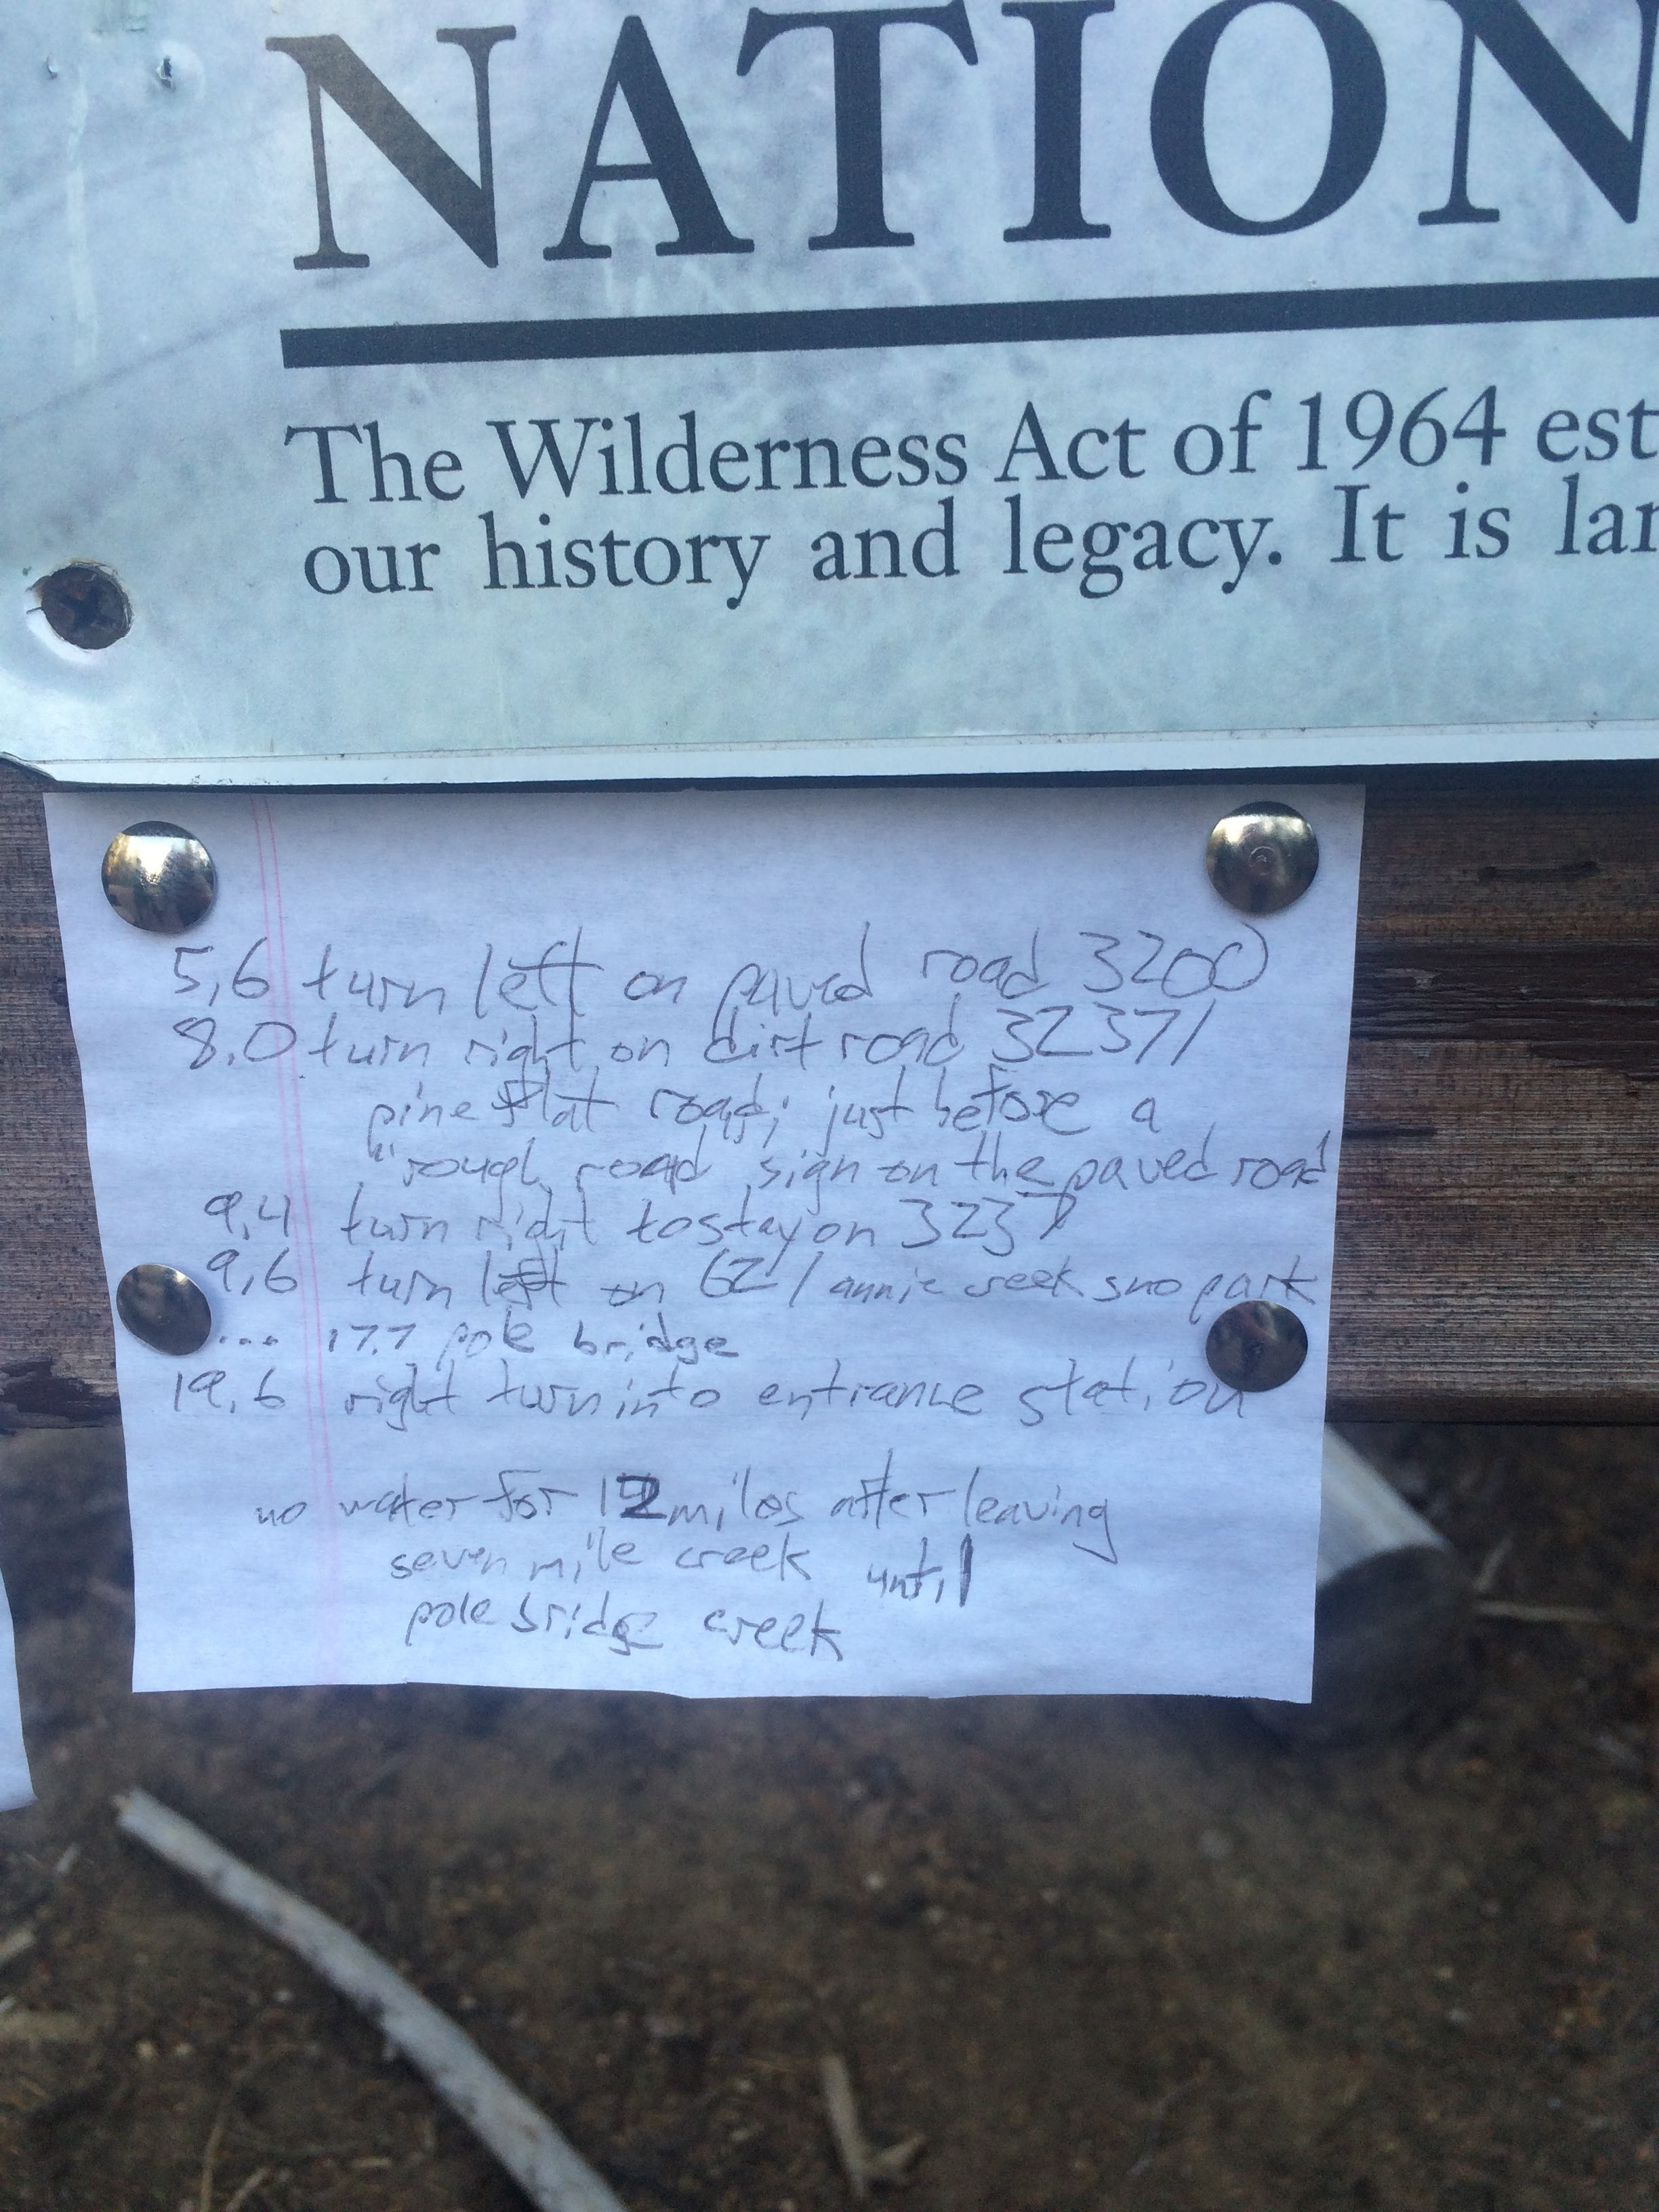 NATION
The Wilderness Act of 1964 est
our history and legacy. It is lan
5,6 turn left on paved road 3200
8,0 turn right on dirt road 3237/
pine flat road; just before a
"rough road" sign on the paved road
9,4 turn right to stay on 3237
9,6 turn left on 62 / annie creek sno park
... 17.7 pole bridge
19,6 right turn into entrance station
no water for 12 miles after leaving
seven mile creek until
pole bridge creek